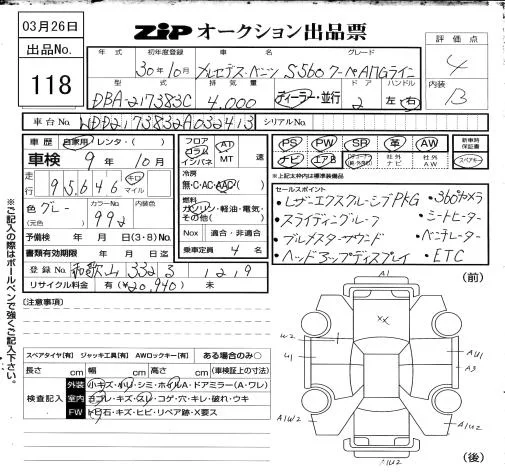 03月26日
出品No.
118
ZiP オークション出品票
年式 初年度登録 車名 グレード
30年10月 メルセデス・ベンツ S560クーペAMGライン
型式 排気量 ドア ハンドル
DBA-217383C 4,000 ディーラー・並行 2 左・右
評価点
4
内装
B
車台No. WDD2173832A032413 シリアルNo.
車歴 自家用・レンタ・( )
車検 9年10月
走行 95,646 キロ マイル
色 グレー カラーNo. 992 内装色
(元色)
予備検 年 月 日(3・8) No.
書類有効期限 年 月 日迄
登録No. 和歌山 332 さ 1219
リサイクル料金 有(¥20,940) 未
フロア コラム インパネ AT MT 速
冷房
無・C・AC・AAC・( )
燃料
ガソリン・軽油・電気・
その他( )
Nox 適合・非適合
乗車定員 4 名
PS PW SR 革 AW 新車時保証書
ナビ エアB 社外ナビ 社外AW スペアキー
※上記太枠内は標準装備品
セールスポイント
・レザーエクスクルーシブPKG ・360°カメラ
・スライディングルーフ ・シートヒーター
・ブルメスターサウンド ・ベンチレーター
・ヘッドアップディスプレイ ・ETC
※ご記入の際はボールペンで強くご記入下さい。
[注意事項]
スペアタイヤ[有] ジャッキ工具[有] AWロックキー[有] ある場合のみ○
長さ cm 幅 cm 高さ cm (車検証上の寸法)
検査記入
外装 小キズ・小U・シミ・ホイルA・ドアミラー(A・ワレ)
室内 ヨゴレ・キズ・スレ・コゲ・穴・キレ・破れ・ウキ
FW トビ石・キズ・ヒビ・リペア跡・X要ス
(前)
A1
XX
U2
U1
AU1
A3
A1W2
A1W2
AU2
(後)